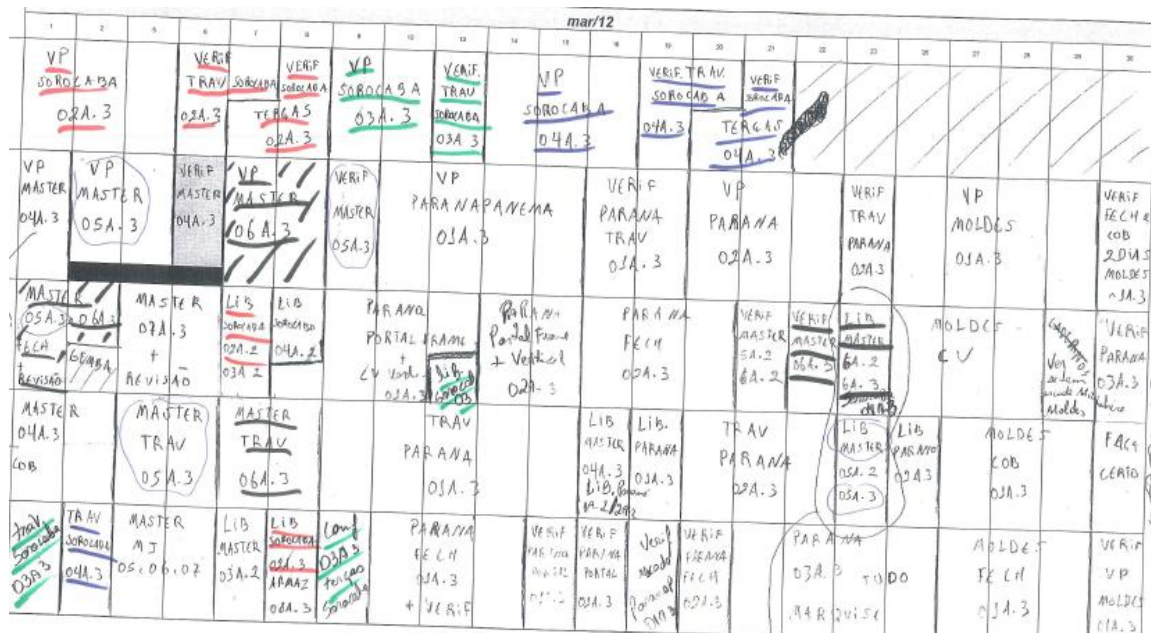 mar/12
1 2 5 6 7 8 9 12 13 14 15 16 19 20 21 22 23 26 27 28 29 30
VP
SOROCABA
02A.3
VERIF
TRAV
02A.3
SOROCABA
VERIF
SOROCABA
TERGAS
02A.3
VP
SOROCABA
03A.3
VERIF.
TRAV
SOROCABA
03A 3
VP
SOROCABA
04A.3
VERIF. TRAV.
SOROCABA
04A.3
VERIF
SOROCABA
TERGAS
04A.3
VP
MASTER
04A.3
VP
MASTER
05A.3
VERIF
MASTER
04A.3
VP
MASTER
06A.3
VERIF
MASTER
05A.3
VP
PARANAPANEMA
01A.3
VERIF
PARANA
TRAV
01A.3
VP
PARANA
02A.3
VERIF
TRAV
PARANA
02A.3
VP
MOLDES
01A.3
VERIF
FECH e
COB
2DIAS
MOLDES
MASTER
05A.3
06A.3
FECH
+
REVISÃO
GEMBA
MASTER
07A.3
+
REVISÃO
LIB
SOROCABA
02A.2
03A.2
LIB
SOROCABA
04A.2
PARANA
PORTAL FRAME
+
01A.3
LIB
03
Portal Frame
+ Vertical
02A.3
PARANA
FECH
02A.3
VERIF
MASTER
5A.2
6A.2
VERIF
MASTER
06A.3
LIB
MASTER
6A.2
6A.3
MOLDES
CV
Ver
Moldes
VERIF
PARANA
03A.3
MASTER
04A.3
COB
MASTER
TRAV
05A.3
MASTER
TRAV
06A.3
TRAV
PARANA
01A.3
LIB
MASTER
04A.3
LIB.
PARANA
01A.3
TRAV
PARANA
02A.3
LIB
MASTER
05A.2
05A.3
LIB
PARANA
02A.3
MOLDES
COB
01A.3
CERTO
Trav.
Sorocaba
03A3
TRAV
SOROCABA
04A.3
MASTER
MJ
05.06.07
LIB
MASTER
03A.2
LIB
SOROCABA
02A.3
ARMAZ
Conf
03A3
terças
Sorocaba
PARANA
FECH
01A.3
+ VERIF
VERIF
PARANA
VERIF
PARANA
PORTAL
01A.3
Verif
VERIF
PARANA
FECH
02A.3
PARANA
03A.3
TUDO
MARQUISE
MOLDES
FECH
01A.3
VERIF
VP
MOLDES
01A.3